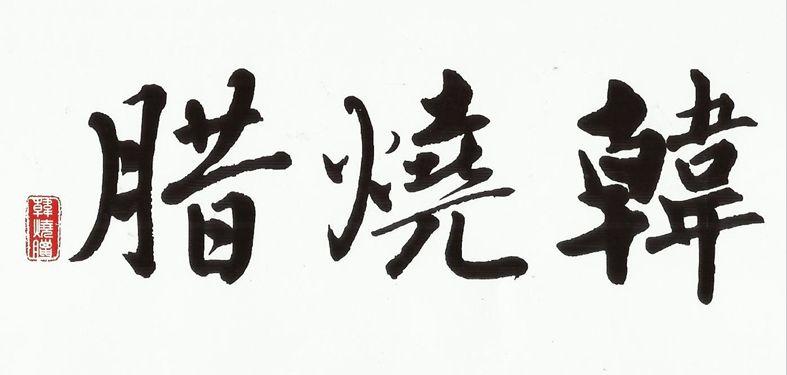 韓燒腊
韓燒臘